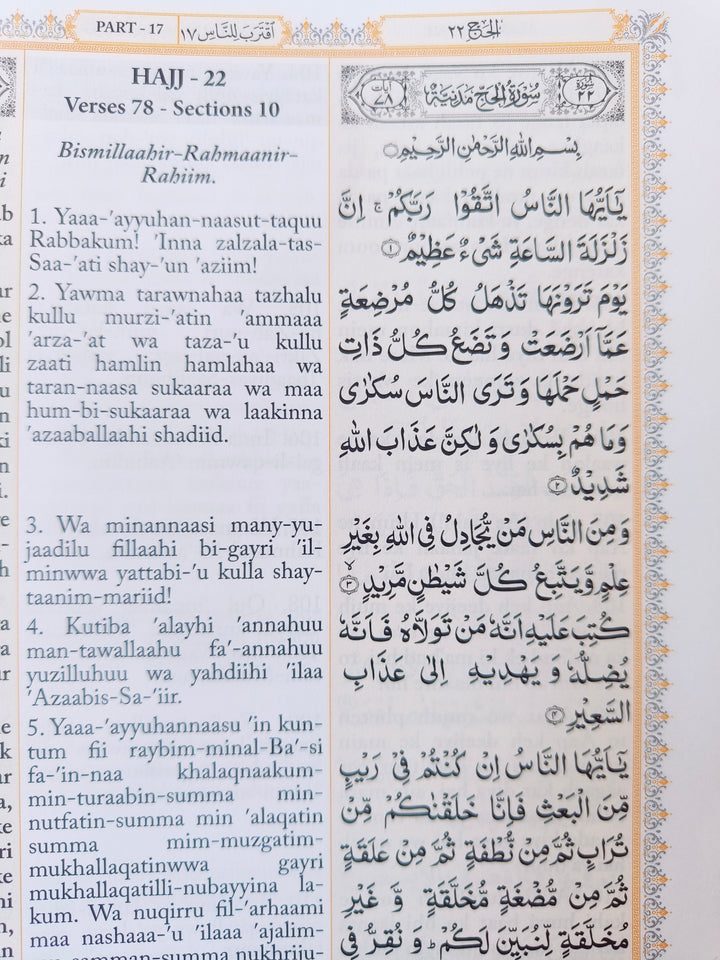 PART - 17
اقْتَرَبَ لِلنَّاسِ ١٧
الحَجّ ٢٢
HAJJ - 22
Verses 78 - Sections 10
Bismillaahir-Rahmaanir-
Rahiim.
1. Yaaa-'ayyuhan-naasut-taquu
Rabbakum! 'Inna zalzala-tas-
Saa-'ati shay-'un 'aziim!
2. Yawma tarawnahaa tazhalu
kullu murzi-'atin 'ammaaa
'arza-'at wa taza-'u kullu
zaati hamlin hamlahaa wa
taran-naasa sukaaraa wa maa
hum-bi-sukaaraa wa laakinna
'azaaballaahi shadiid.
3. Wa minannaasi many-yu-
jaadilu fillaahi bi-gayri 'il-
minwwa yattabi-'u kulla shay-
taanim-mariid!
4. Kutiba 'alayhi 'annahuu
man-tawallaahu fa'-annahuu
yuzilluhuu wa yahdiihi 'ilaa
'Azaabis-Sa-'iir.
5. Yaaa-'ayyuhannaasu 'in kun-
tum fii raybim-minal-Ba'-si
fa-'in-naa khalaqnaakum-
min-turaabin-summa min-
nutfatin-summa min 'alaqatin
summa mim-muzgatim-
mukhallaqatinwwa gayri
mukhallaqatilli-nubayyina la-
kum. Wa nuqirru fil-'arhaami
maa nashaaa-'u 'ilaaa 'ajalim-
samman-summa nukhriju-
سورة ٢٢
سُوْرَةُ الْحَجِّ مَدَنِيَّةٌ
آيات ٧٨
بِسْمِ اللهِ الرَّحْمٰنِ الرَّحِيْمِ
يٰٓاَيُّهَا النَّاسُ اتَّقُوْا رَبَّكُمْ ۚ اِنَّ
زَلْزَلَةَ السَّاعَةِ شَىْءٌ عَظِيْمٌ ۝١
يَوْمَ تَرَوْنَهَا تَذْهَلُ كُلُّ مُرْضِعَةٍ
عَمَّآ اَرْضَعَتْ وَتَضَعُ كُلُّ ذَاتِ
حَمْلٍ حَمْلَهَا وَتَرَى النَّاسَ سُكٰرٰى
وَمَا هُمْ بِسُكٰرٰى وَلٰكِنَّ عَذَابَ اللهِ
شَدِيْدٌ ۝٢
وَمِنَ النَّاسِ مَنْ يُّجَادِلُ فِى اللهِ بِغَيْرِ
عِلْمٍ وَّيَتَّبِعُ كُلَّ شَيْطٰنٍ مَّرِيْدٍ ۝٣
كُتِبَ عَلَيْهِ اَنَّهٗ مَنْ تَوَلَّاهُ فَاَنَّهٗ
يُضِلُّهٗ وَيَهْدِيْهِ اِلٰى عَذَابِ
السَّعِيْرِ ۝٤
يٰٓاَيُّهَا النَّاسُ اِنْ كُنْتُمْ فِىْ رَيْبٍ
مِّنَ الْبَعْثِ فَاِنَّا خَلَقْنٰكُمْ مِّنْ
تُرَابٍ ثُمَّ مِنْ نُّطْفَةٍ ثُمَّ مِنْ عَلَقَةٍ
ثُمَّ مِنْ مُّضْغَةٍ مُّخَلَّقَةٍ وَّغَيْرِ
مُخَلَّقَةٍ لِّنُبَيِّنَ لَكُمْ ؕ وَنُقِرُّ فِى